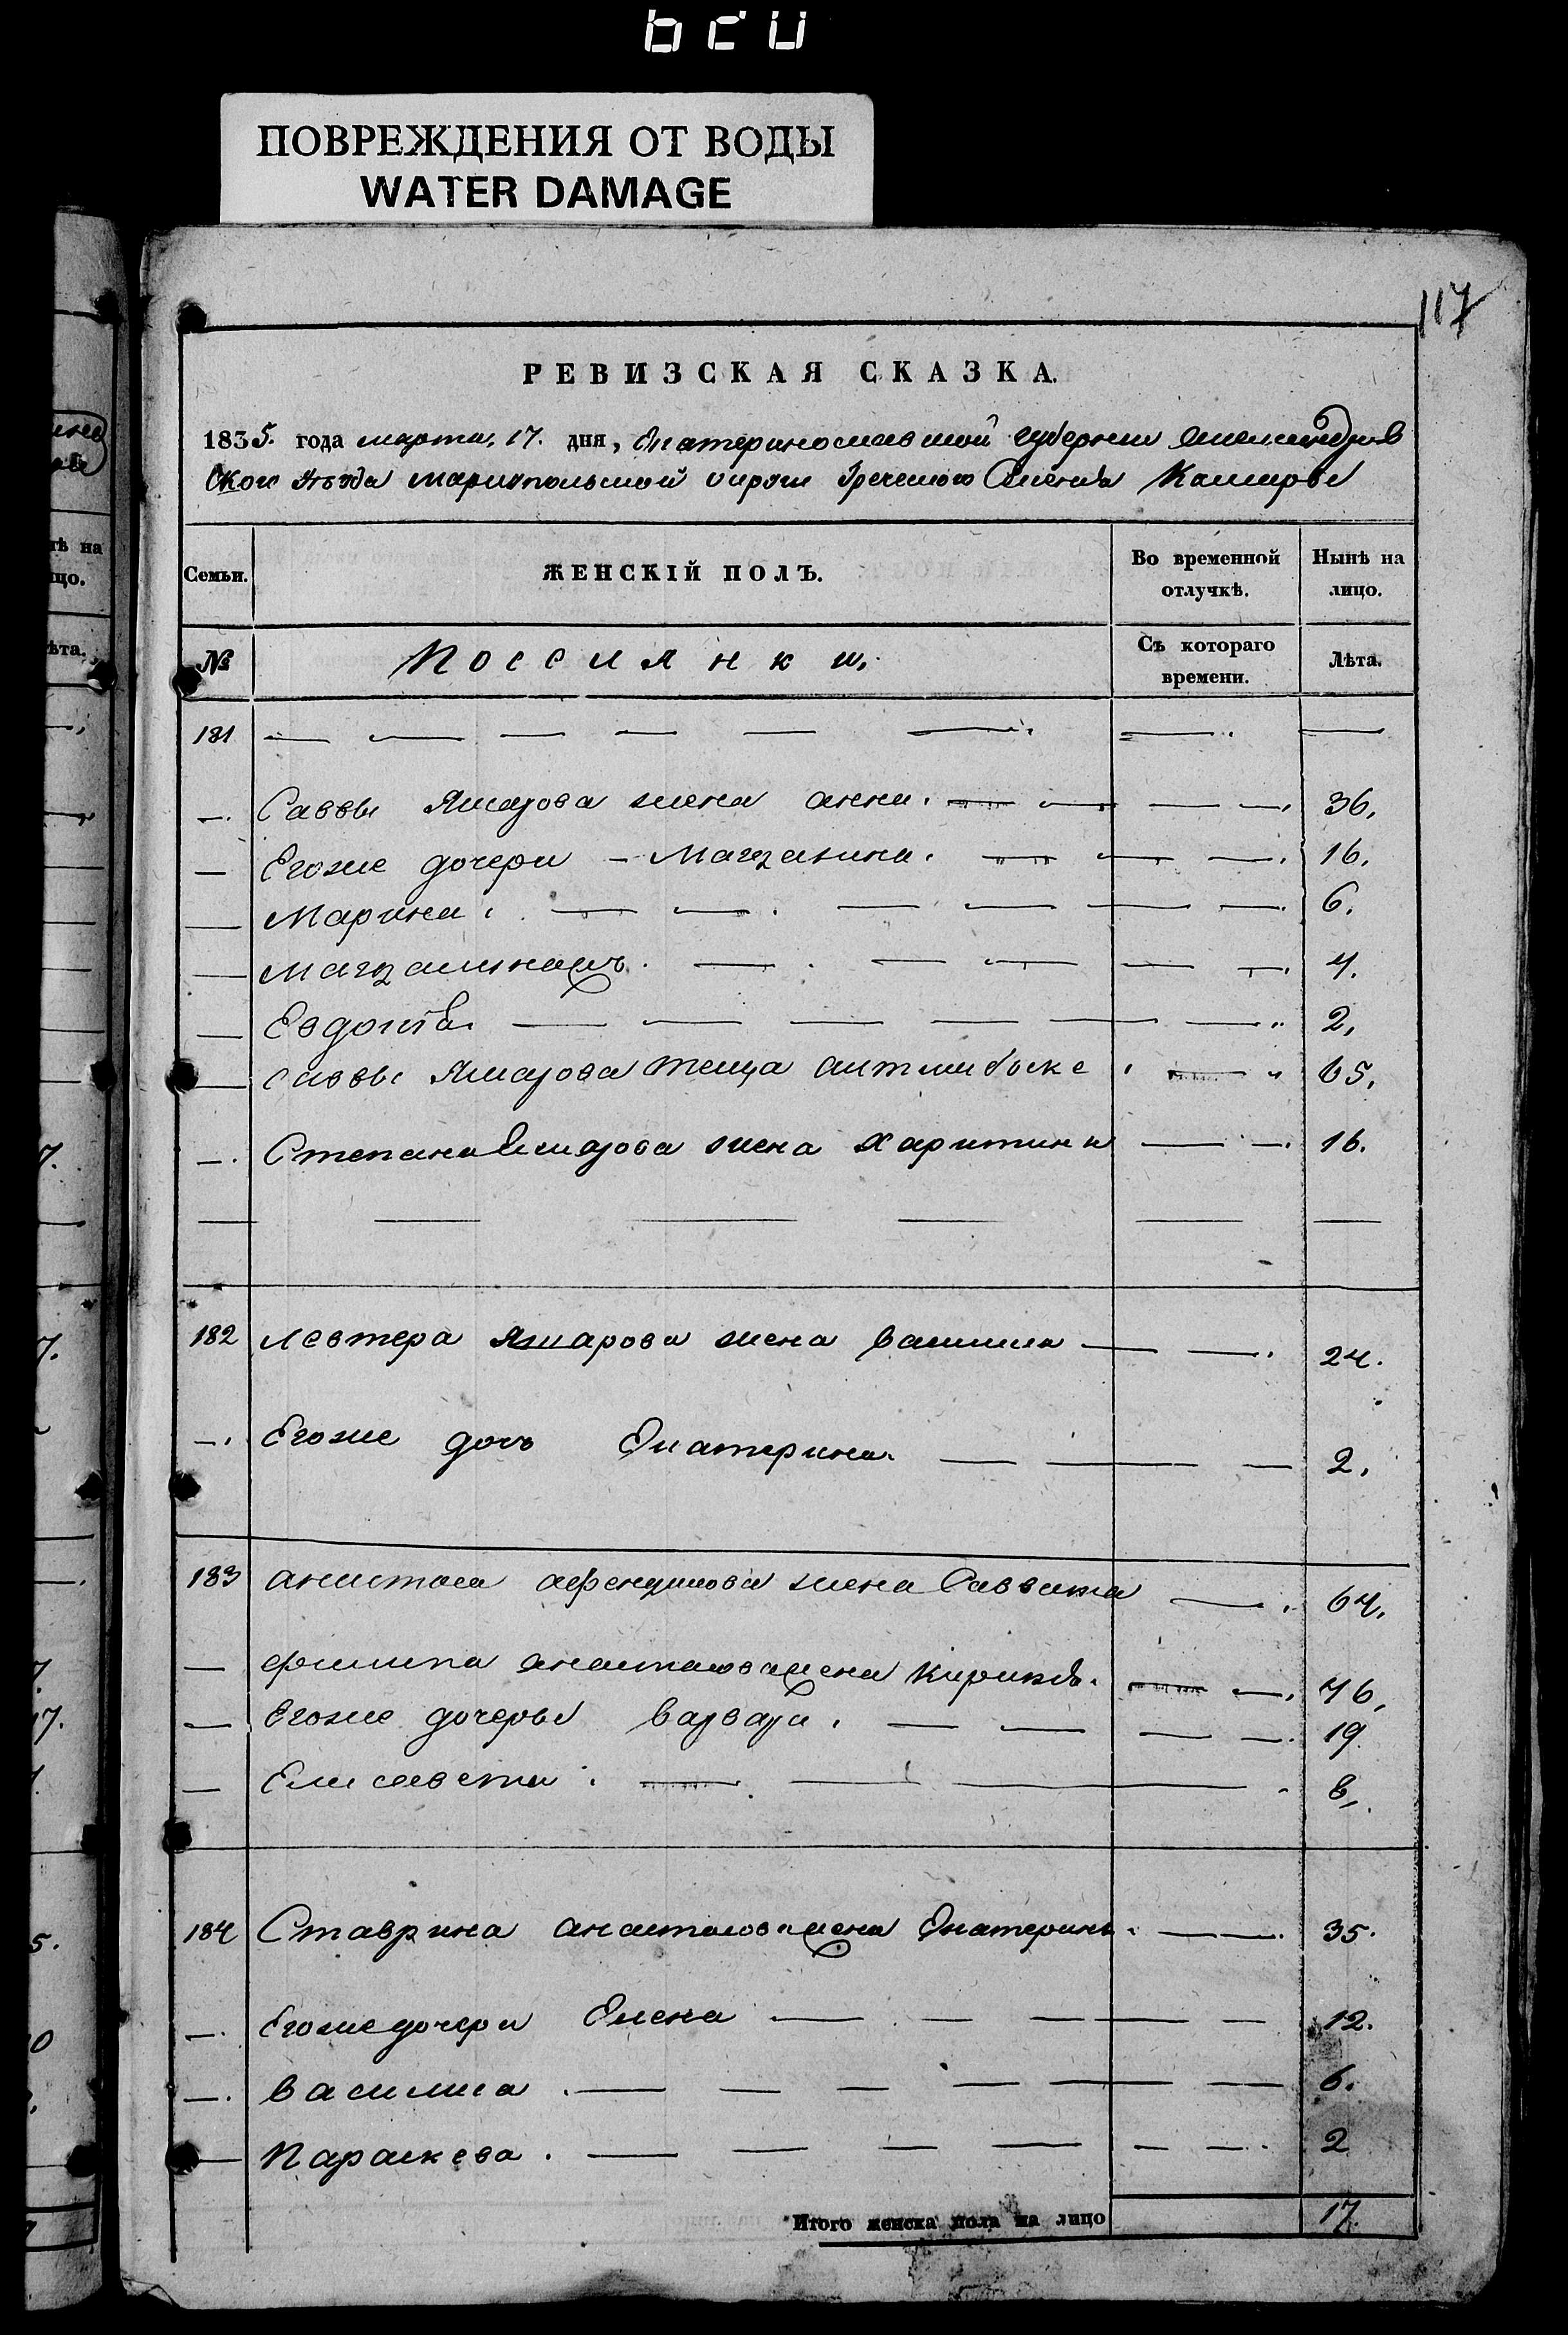 ПОВРЕЖДЕНИЯ ОТ ВОДЫ
WATER DAMAGE
117
РЕВИЗСКАЯ СКАЗКА.
1835. года марта, 17. дня, Екатеринославской губерніи Александров
ской Уѣзда мариупольской округи Греческого Селенія
Семьи. ЖЕНСКІЙ ПОЛЪ. Во временной отлучкѣ. Нынѣ на лицо.
№ Поселянки. Съ котораго времени. Лѣта.
181
Саввы жена анна. 36.
Егоже дочери 16.
Марина. 6.
4.
Евдокія. 2,
саввы теща 65.
Степана жена Харитина 16.
182 Левтера жена василиса 24.
Егоже дочь Екатерина. 2.
183 анастаса жена 64.
филипа анастасова жена 46,
Егоже дочеры варвара. 19
Елисавета. 8,
184 Ставрина анастасова жена Екатерина. 35.
Егоже дочери Елена 12.
василиса. 6.
Параскева. 2
Итого женска пола на лицо 17.